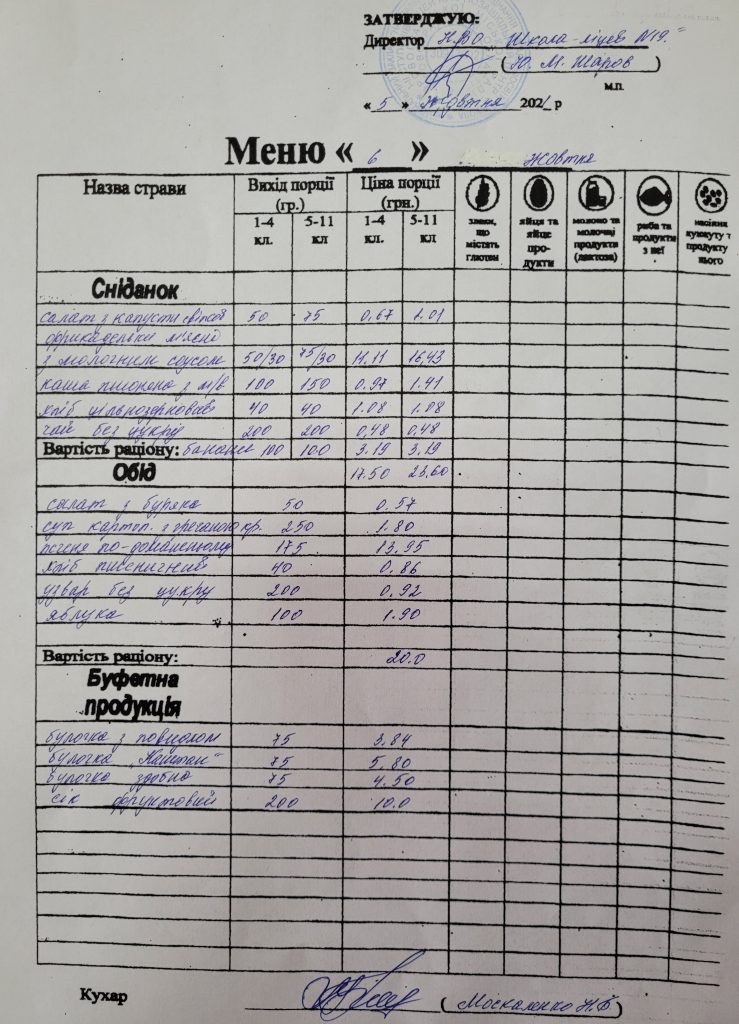 ЗАТВЕРДЖУЮ:
Директор НВО Школа-ліцей №19"
(Ю. М. Шаров)
м.п.
« 5 » жовтня 2021 р
Меню « 6 » жовтня
Назва страви Вихід порції (гр.) Ціна порції (грн.) злаки, що містять глютен яйця та яйце про- дукти молоко та молочні продукти (лактоза) риба та продукти з неї насіння кунжуту т продукту нього
1-4 кл. 5-11 кл 1-4 кл. 5-11 кл
Сніданок
салат з капусти 50 75 0,67 1.01
фрикадельки мясні
з молочним соусом 50/30 75/30 11,11 16,43
каша пшоняна з м/в 100 150 0.97 1.41
хліб цільнозерновий 40 40 1.08 1.08
чай без цукру 200 200 0,48 0,48
Вартість раціону: банани 100 100 3.19 3,19
Обід 17.50 23.60
салат з буряка 50 0.57
суп картоп. з гречаною кр. 250 1.80
печеня по-домашньому 175 13.95
хліб пшеничний 40 0.86
узвар без цукру 200 0.92
яблука 100 1.90
Вартість раціону: 20.0
Буфетна
продукція
булочка з повидлом 75 3.84
булочка „Каштан" 75 5.80
булочка здобна 75 4.50
сік фруктовий 200 10.0
Кухар (Москаленко Н.Б)